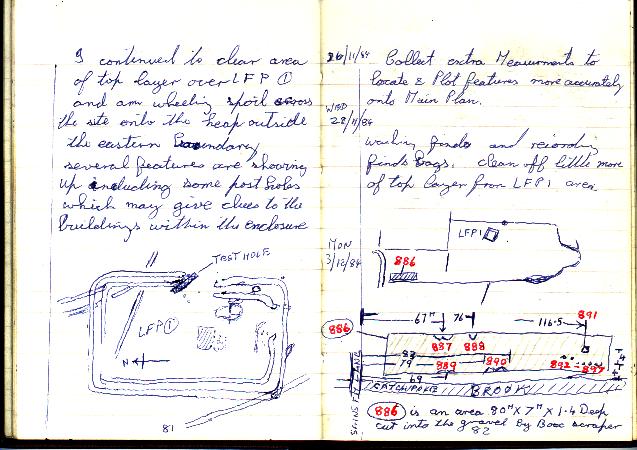 I continued to clear area
of top layer over LFP ①
and am wheeling spoil across
the site onto the heap outside
the eastern Boundary
several features are showing
up including some post holes
which may give clues to the
buildings within the enclosure
TEST HOLE
LFP ①
N
81
26/11/84 Collect extra Measurments to
locate & Plot features more accurately
onto Main Plan.
WED
28/11/84
washing finds and recording
finds bags. clean off little more
of top layer from LFP1 area.
MON
3/12/84
LFP1
886
67" 76 116.5 891
886
887 888
83
79 889 890 892 897
69
CATCHPOLE BROOK
LANE
886 is an area 80" X 7" X 1.4 Deep
cut into the gravel By Box scraper
82